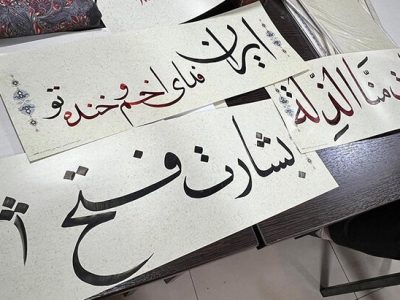 ایران
فدای اخم و خنده تو
منّا الذلة
بشارت فتح